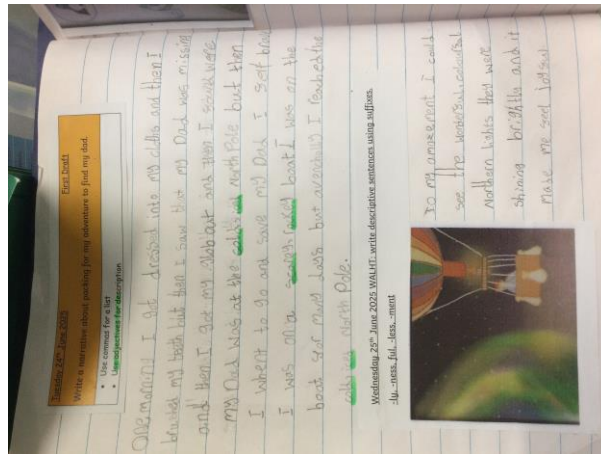 Tuesday 24th June 2025 First Draft
Write a narrative about packing for my adventure to find my dad.
Use commas for a list
Use adjectives for description
One morning I got dressed into my cloths and then I
brushed my teeth but then I saw that my Dad was missing
and then I got my glob out and then I saw were
my Dad was at the North Pole but then
I whent to go and save my Dad I feel brave
I was on a scarey boat I was on the
boat for many days but I reached the
North Pole.
Wednesday 25th June 2025 WALHT: write descriptive sentences using suffixes.
-ly, -ness, ful, -less, -ment
To my I could
see the
Northern Lights they were
shining brightly and it
made me feel joyful